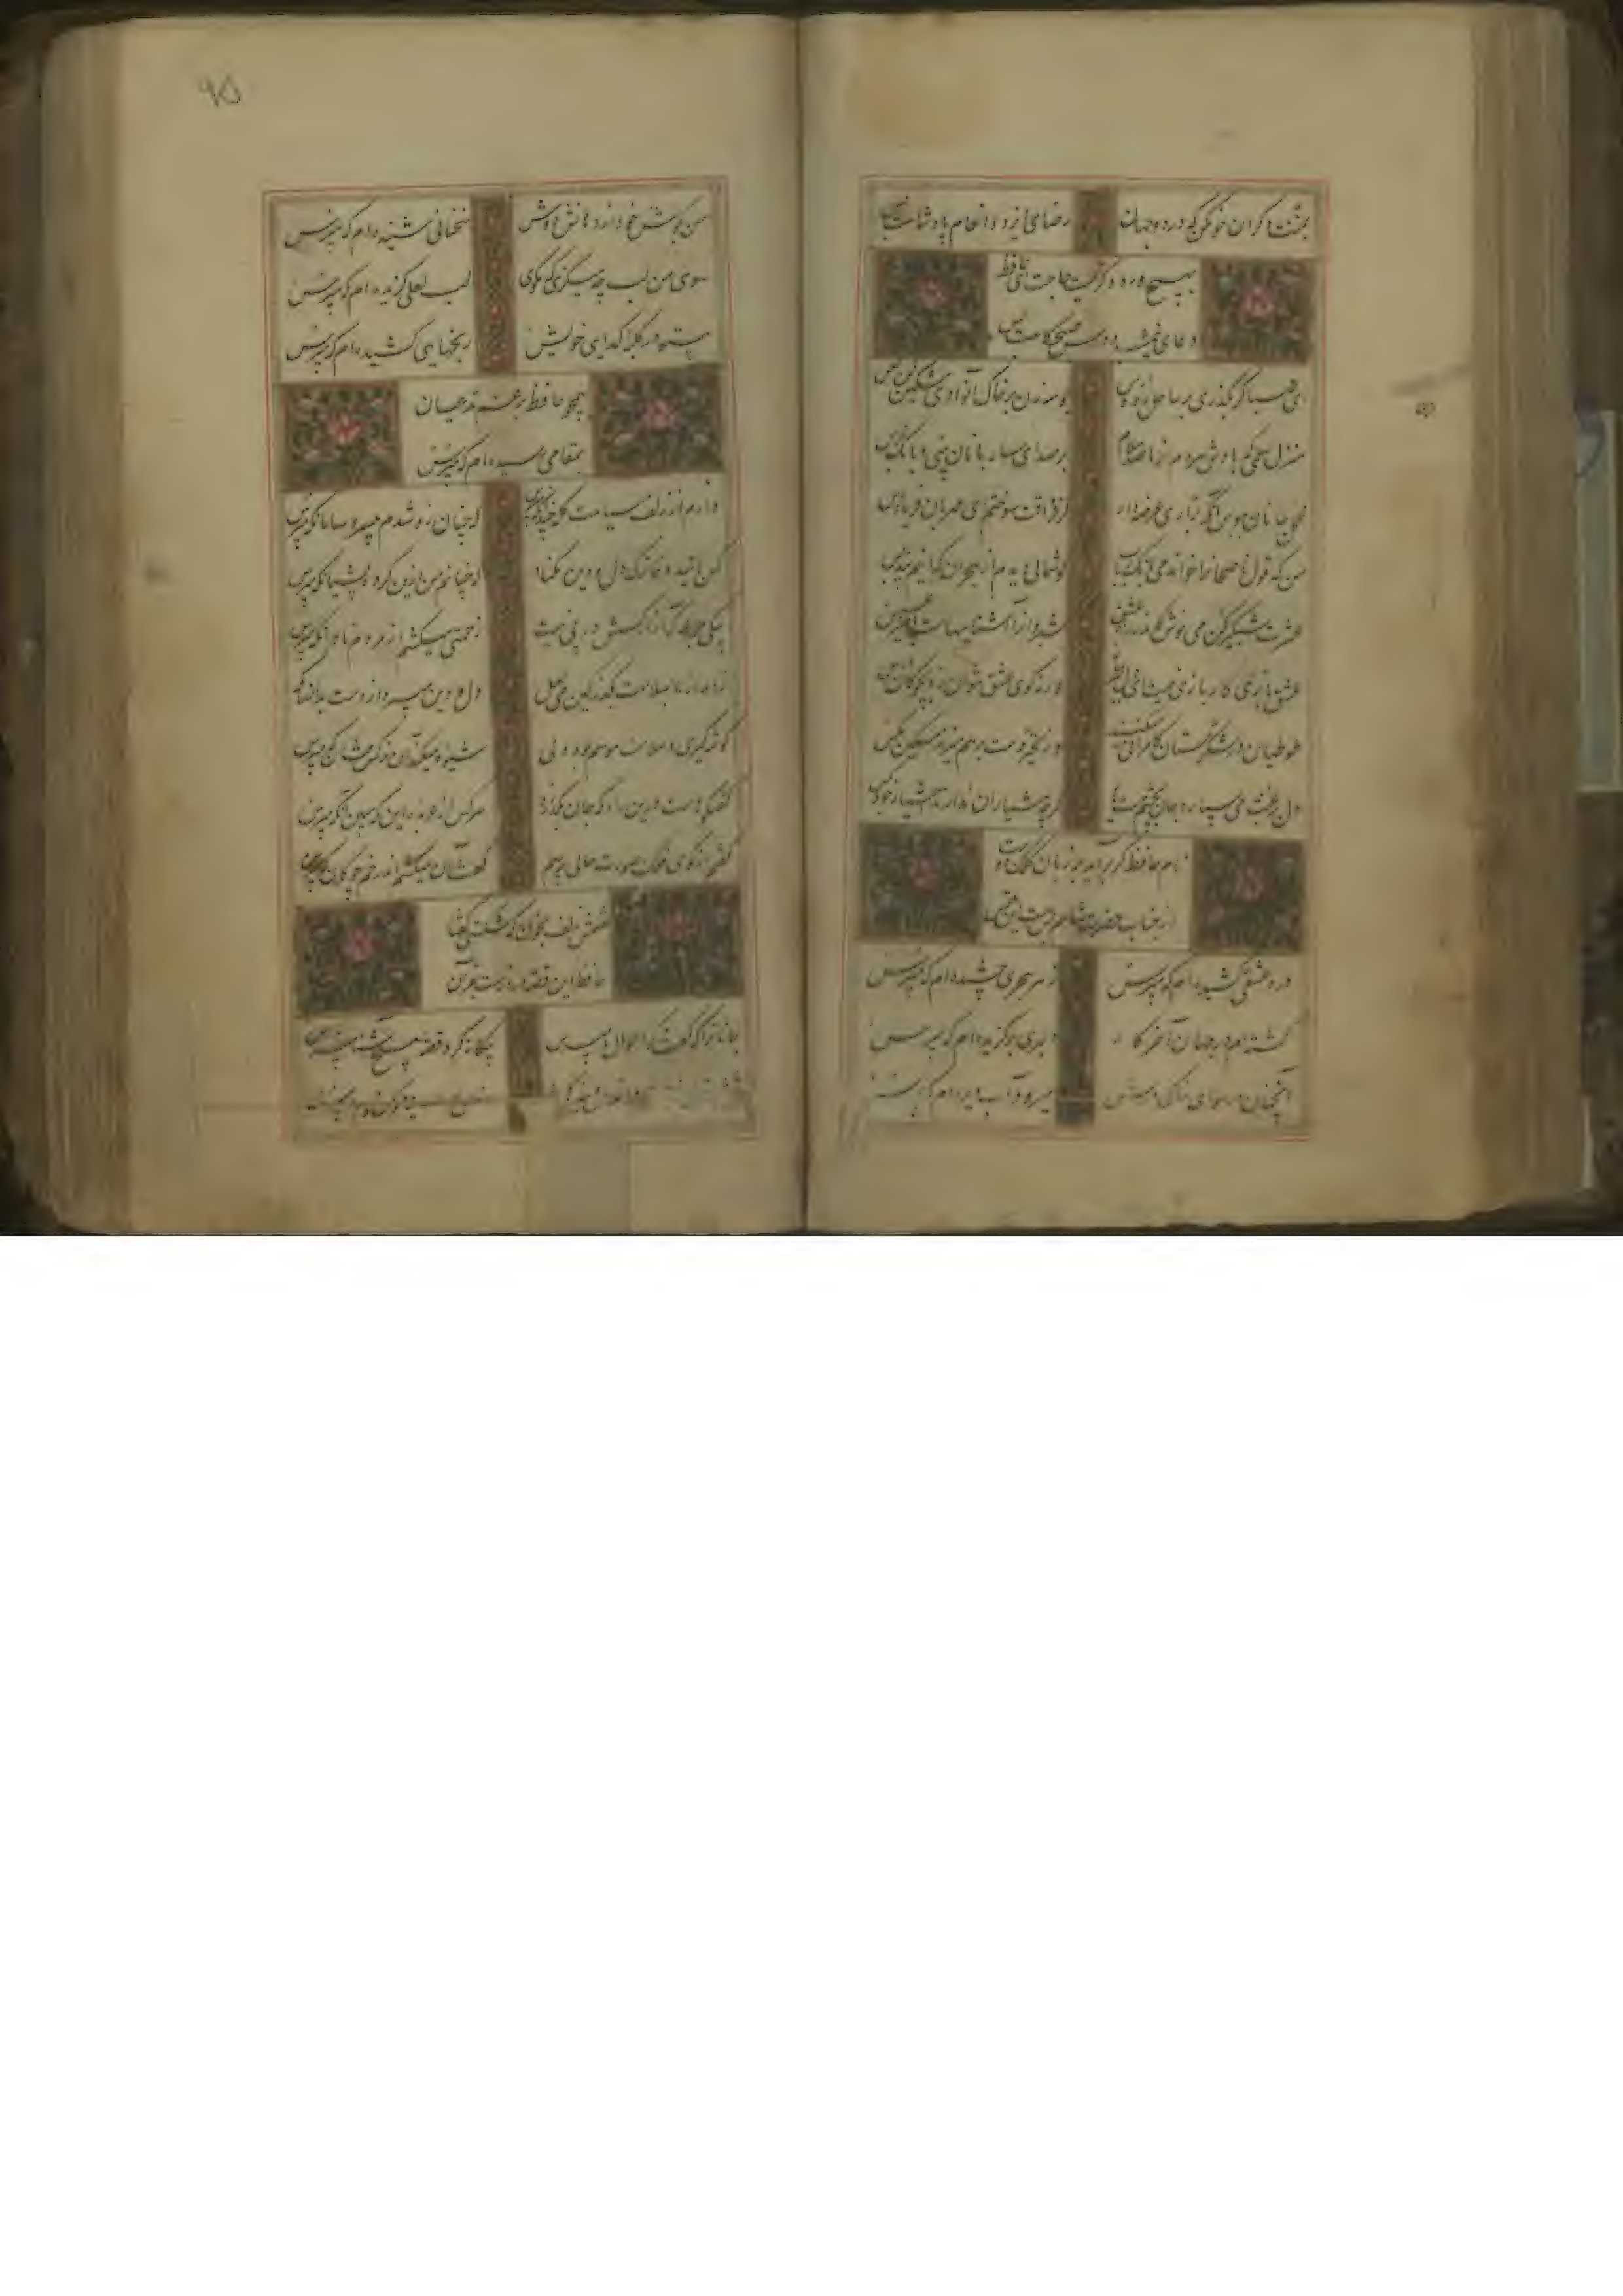 بمنت دگران خو مکن که در دو جهان رضای ایزد و انعام پادشاهت بس
بهیچ ورد دگر نیست حاجت ای حافظ
دعای نیم شب و درس صبحگاهت بس
ای صبا گر بگذری بر ساحل رود ارس بوسه زن بر خاک آن وادی و مشکین کن نفس
منزل سلمی که بادش هر دم از ما صد سلام پر صدای ساربانان بینی و بانگ جرس
محمل جانان ببوس آنگه بزاری عرضه دار کز فراقت سوختم ای مهربان فریاد رس
من که قول ناصحانرا خواندمی بانگ رباب گوشمالی دیدم از هجران که اینم پند بس
عشرت شبگیر کن می نوش کاندر راه عشق شبروان را آشناییهاست با میر عسس
عشق بازی کار بازی نیست ای دل سر بباز ورنه گوی عشق نتوان زد بچوگان هوس
طوطیان در شکرستان کامرانی میکنند وز تحسر دست بر سر میزند مسکین مگس
دل برغبت می سپارد جان بچشم مست یار گرچه هشیاران ندادند اختیار خود بکس
نام حافظ گر برآید بر زبان کلک دوست
از جناب حضرت شاهم بس است این ملتمس
درد عشقی کشیده ام که مپرس زهر هجری چشیده ام که مپرس
گشته ام در جهان و آخر کار دلبری برگزیده ام که مپرس
آنچنان در هوای خاک درش میرود آب دیده ام که مپرس
۹۵
من بگوش خود از دهانش دوش سخنانی شنیده ام که مپرس
سوی من لب چه میگزی که مگوی لب لعلی گزیده ام که مپرس
بیتو در کلبه گدایی خویش رنجهایی کشیده ام که مپرس
همچو حافظ غریب در ره عشق
بمقامی رسیده ام که مپرس
دارم از زلف سیاهت گله چندان که مپرس که چنان زو شدم بی سر و سامان که مپرس
کس بامید وفا ترک دل و دین مکناد که چنانم من ازین کرده پشیمان که مپرس
بیکی جرعه که آزار کسش در پی نیست زحمتی میکشم از مردم نادان که مپرس
زاهد از ما بسلامت بگذر کین می لعل دل و دین میبرد از دست بدانسان که مپرس
گوشه گیری و سلامت هوسم بود ولی شیوه میکند آن نرگس فتان که مپرس
گفتگوهاست درین راه که جان بگدازد هر کس از عربده این که مبین آن که مپرس
گفتم از گوی فلک صورت حالی پرسم گفت آن میکشم اندر خم چوگان که مپرس
گفتمش زلف بخون که شکستی گفتا
حافظ این قصه درازست بقرآن که مپرس
جانا ترا که گفت که احوال ما مپرس بیگانه گرد و قصه هیچ آشنا مپرس